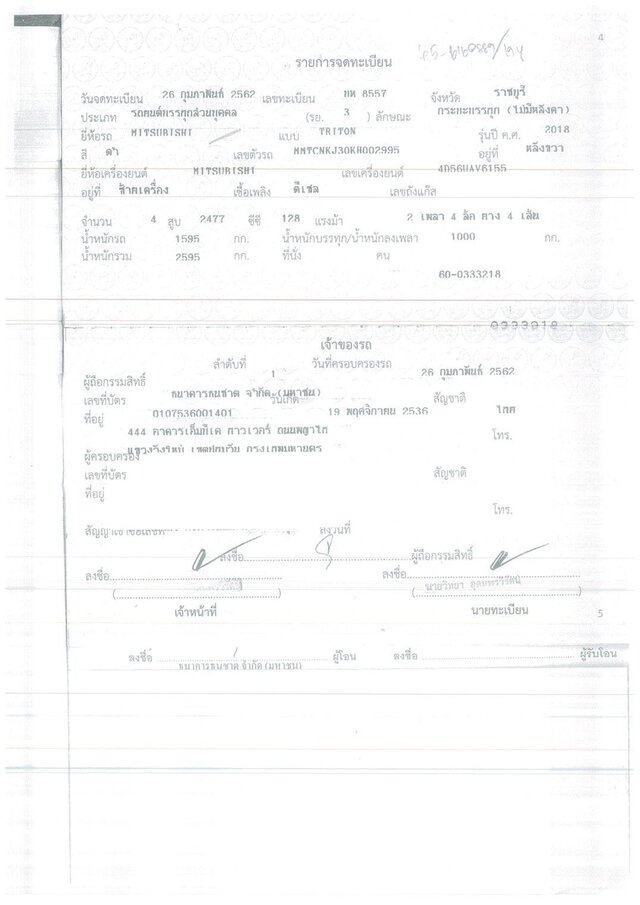 4
รายการจดทะเบียน
วันจดทะเบียน 26 กุมภาพันธ์ 2562 เลขทะเบียน 8557 จังหวัด ราชบุรี
ประเภท รถยนต์บรรทุกส่วนบุคคล (รย. 3 ) ลักษณะ กระบะบรรทุก (ไม่มีหลังคา)
ยี่ห้อรถ MITSUBISHI แบบ TRITON รุ่นปี ค.ศ. 2018
สี ดำ เลขตัวรถ MMTCNKJ30KH002995 อยู่ที่ หลังขวา
ยี่ห้อเครื่องยนต์ MITSUBISHI เลขเครื่องยนต์ 4D56UAV6155
อยู่ที่ ซ้ายเครื่อง เชื้อเพลิง ดีเซล เลขถังแก๊ส
จำนวน 4 สูบ 2477 ซีซี 128 แรงม้า 2 เพลา 4 ล้อ ยาง 4 เส้น
น้ำหนักรถ 1595 กก. น้ำหนักบรรทุก/น้ำหนักลงเพลา 1000 กก.
น้ำหนักรวม 2595 กก. ที่นั่ง คน
60-0333218
เจ้าของรถ
ลำดับที่ 1 วันที่ครอบครองรถ 26 กุมภาพันธ์ 2562
ผู้ถือกรรมสิทธิ์ ธนาคารธนชาต จำกัด (มหาชน)
เลขที่บัตร 0107536001401 วันเกิด 19 พฤศจิกายน 2536 สัญชาติ ไทย
ที่อยู่ 444 อาคารเอ็มบีเค ทาวเวอร์ ถนนพญาไท โทร.
แขวงวังใหม่ เขตปทุมวัน กรุงเทพมหานคร
ผู้ครอบครอง
เลขที่บัตร สัญชาติ
ที่อยู่
โทร.
สัญญาเช่าซื้อเลขที่ ลงวันที่
ลงชื่อ ผู้ถือกรรมสิทธิ์
ลงชื่อ ลงชื่อ
นายวิทยา
เจ้าหน้าที่ นายทะเบียน
5
ลงชื่อ ผู้โอน ลงชื่อ ผู้รับโอน
ธนาคารธนชาต จำกัด (มหาชน)